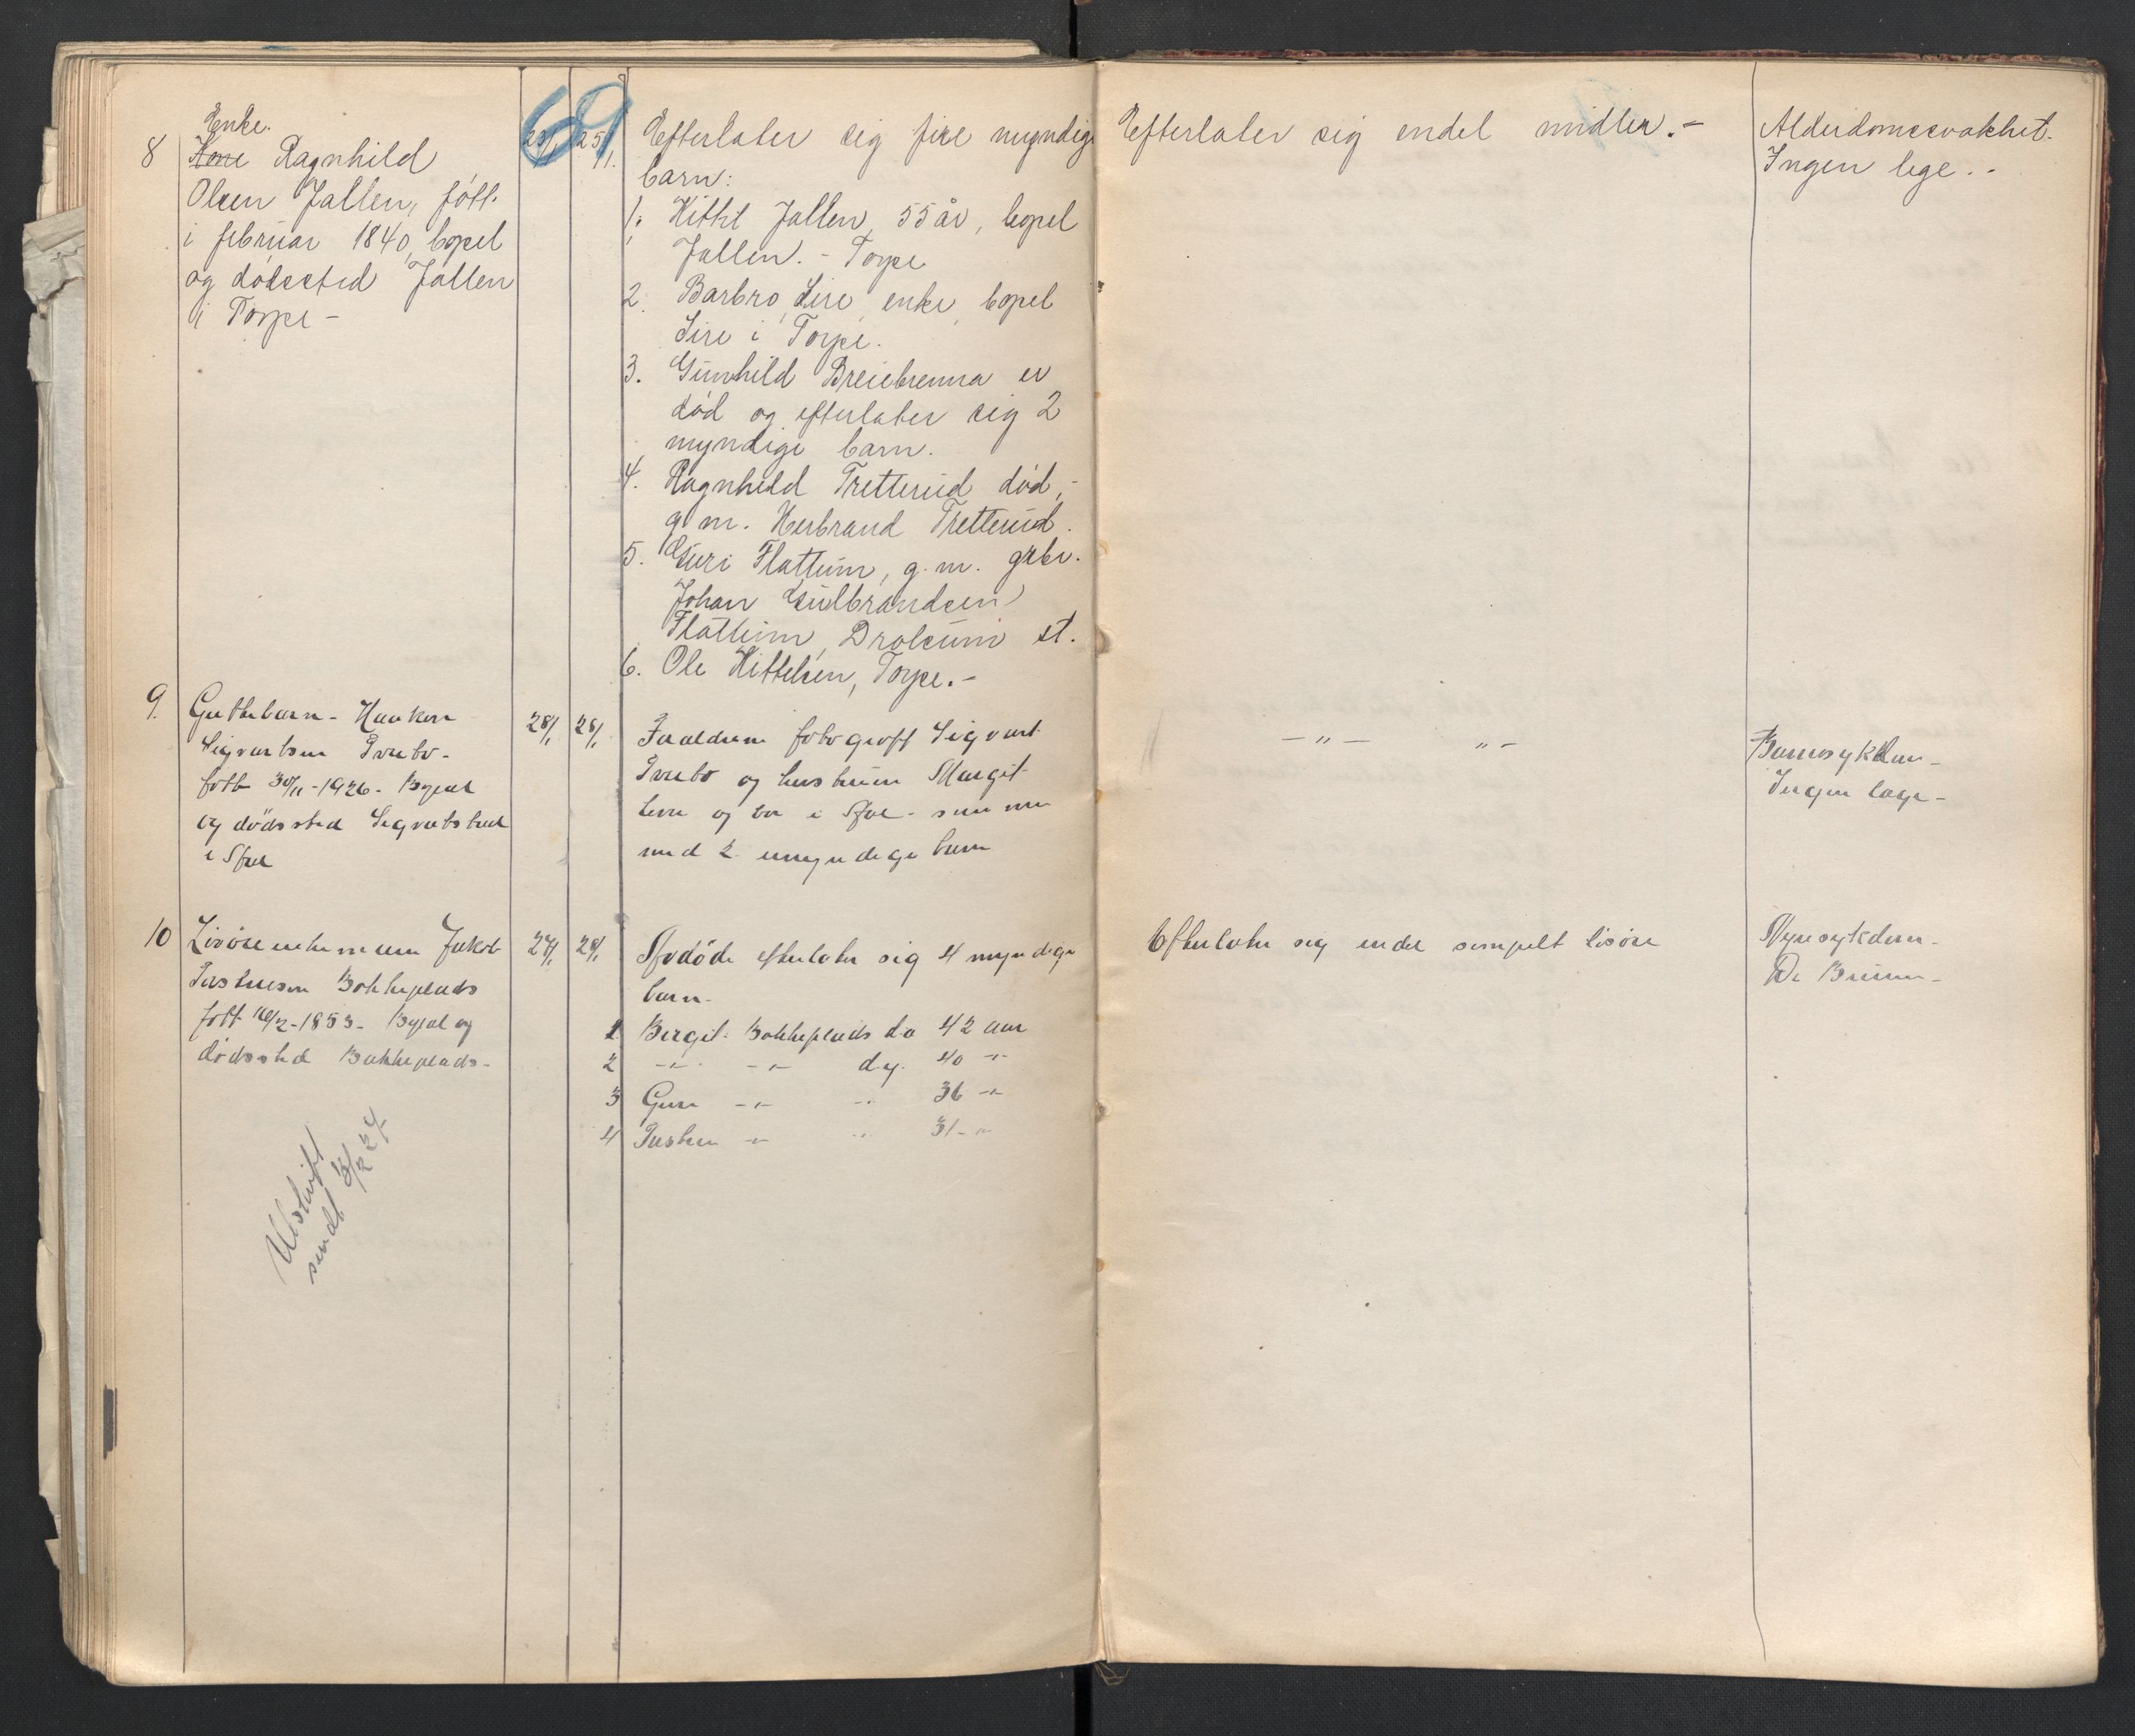 69
8
Enke.
Kone Ragnhild
Olsen Jallen, født
i februar 1840, bopel
og dødssted Jallen
i Torpe -
25/1.
Efterlater sig fire myndige
barn:
1. Kittil Jallen, 55 år, bopel
Jallen. - Torpe
2. Barbro Lire, enke, bopel
Lire i Torpe.
3. Gunhild Breiebrenna er
død og efterlater sig 2
myndige barn.
4. Ragnhild Tretterud død, -
g. m. Herbrand Tretterud.
5. Guri Flattum, g. m. grbr.
Johan Gulbrandsen
Flattum, Drolsum st.
6. Ole Kittelsen, Torpe. -
Efterlater sig endel midler. -
Alderdomssvakhet.
Ingen lege. -
9.
Guttebarn - Haakon
Sigvartsen
født 30/11 - 1926 - Bopæl
og dødssted
i Aal
28/1
28/1
Forældrene fotograf Sigvart
og hustruen Margit
leve og bor i Aal -
med 2 umyndige barn
- " - " -
Barnesykdom -
Ingen læge -
10
Jakob
Bakkeplads
født 16/2 - 1853 - Bopæl og
dødssted Bakkeplads -
27/1
28/1
Avdøde efterlater sig 4 myndige
barn -
1 Birgit Bakkeplads do 42 aar
2 -"- -"- 40 -"-
3 Guri -"- -"- 36 -"-
4 -"- -"- 31 -"-
Efterlater sig endel simpelt løsøre
Nyresykdom -
Dr
Utskrift
sendt